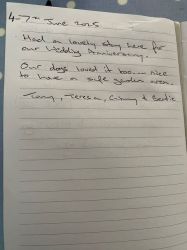 4-7th June 2025
Had a lovely stay here for
our Wedding Anniversary.
Our dogs loved it too... nice
to have a safe garden area.
Tony, Teresa, Ginny & Bertie